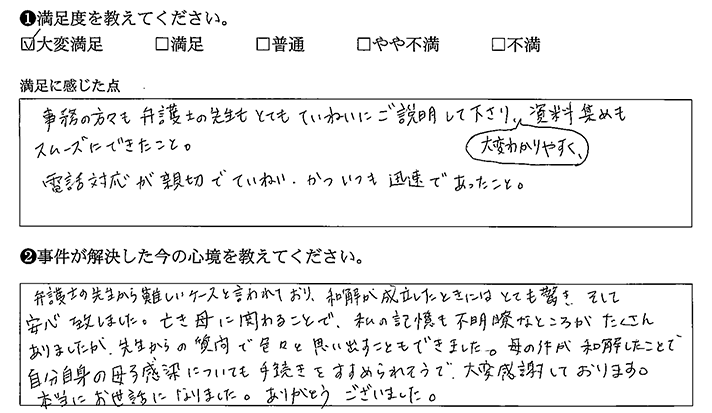 ❶満足度を教えてください。
☑大変満足 □満足 □普通 □やや不満 □不満
満足に感じた点
事務の方々も弁護士の先生もとてもていねいにご説明して下さり、資料集めも
大変わかりやすく、
スムーズにできたこと。
電話対応が親切でていねい、かついつも迅速であったこと。
❷事件が解決した今の心境を教えてください。
弁護士の先生から難しいケースと言われており、和解が成立したときにはとても驚き、そして
安心致しました。亡き母に関わることで、私の記憶も不明瞭なところがたくさん
ありましたが、先生からの質問で色々と思い出すこともできました。母の件が和解したことで
自分自身の母子感染についても手続きをすすめられそうで、大変感謝しております。
本当にお世話になりました。ありがとうございました。